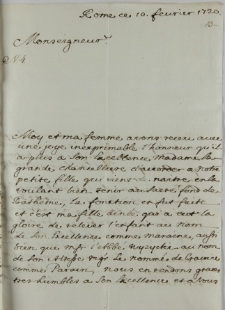 Rome ce 10. fevrier 1720
Monseigneur
N 4
Moy et ma femme avons receu avec
une joye inexprimable l'honneur qu'il
a pleu a Son Excellence, Madame la
grande chanceliere d'accorder a notre
petite fille qui vient de naitre en la
voulant bien tenir au Sacré fond de
Bathême, la fonction en fut faite
et c'est ma fille qui a eut la
gloire de relever l'enfant au nom
de Son Excellence comme maraine, aussi
bien que Mgr l'Abbé au nom
de Son Altesse Mgr le
comme Parain, nous en rendons graces
tres humbles a Son Excellence et a Vous